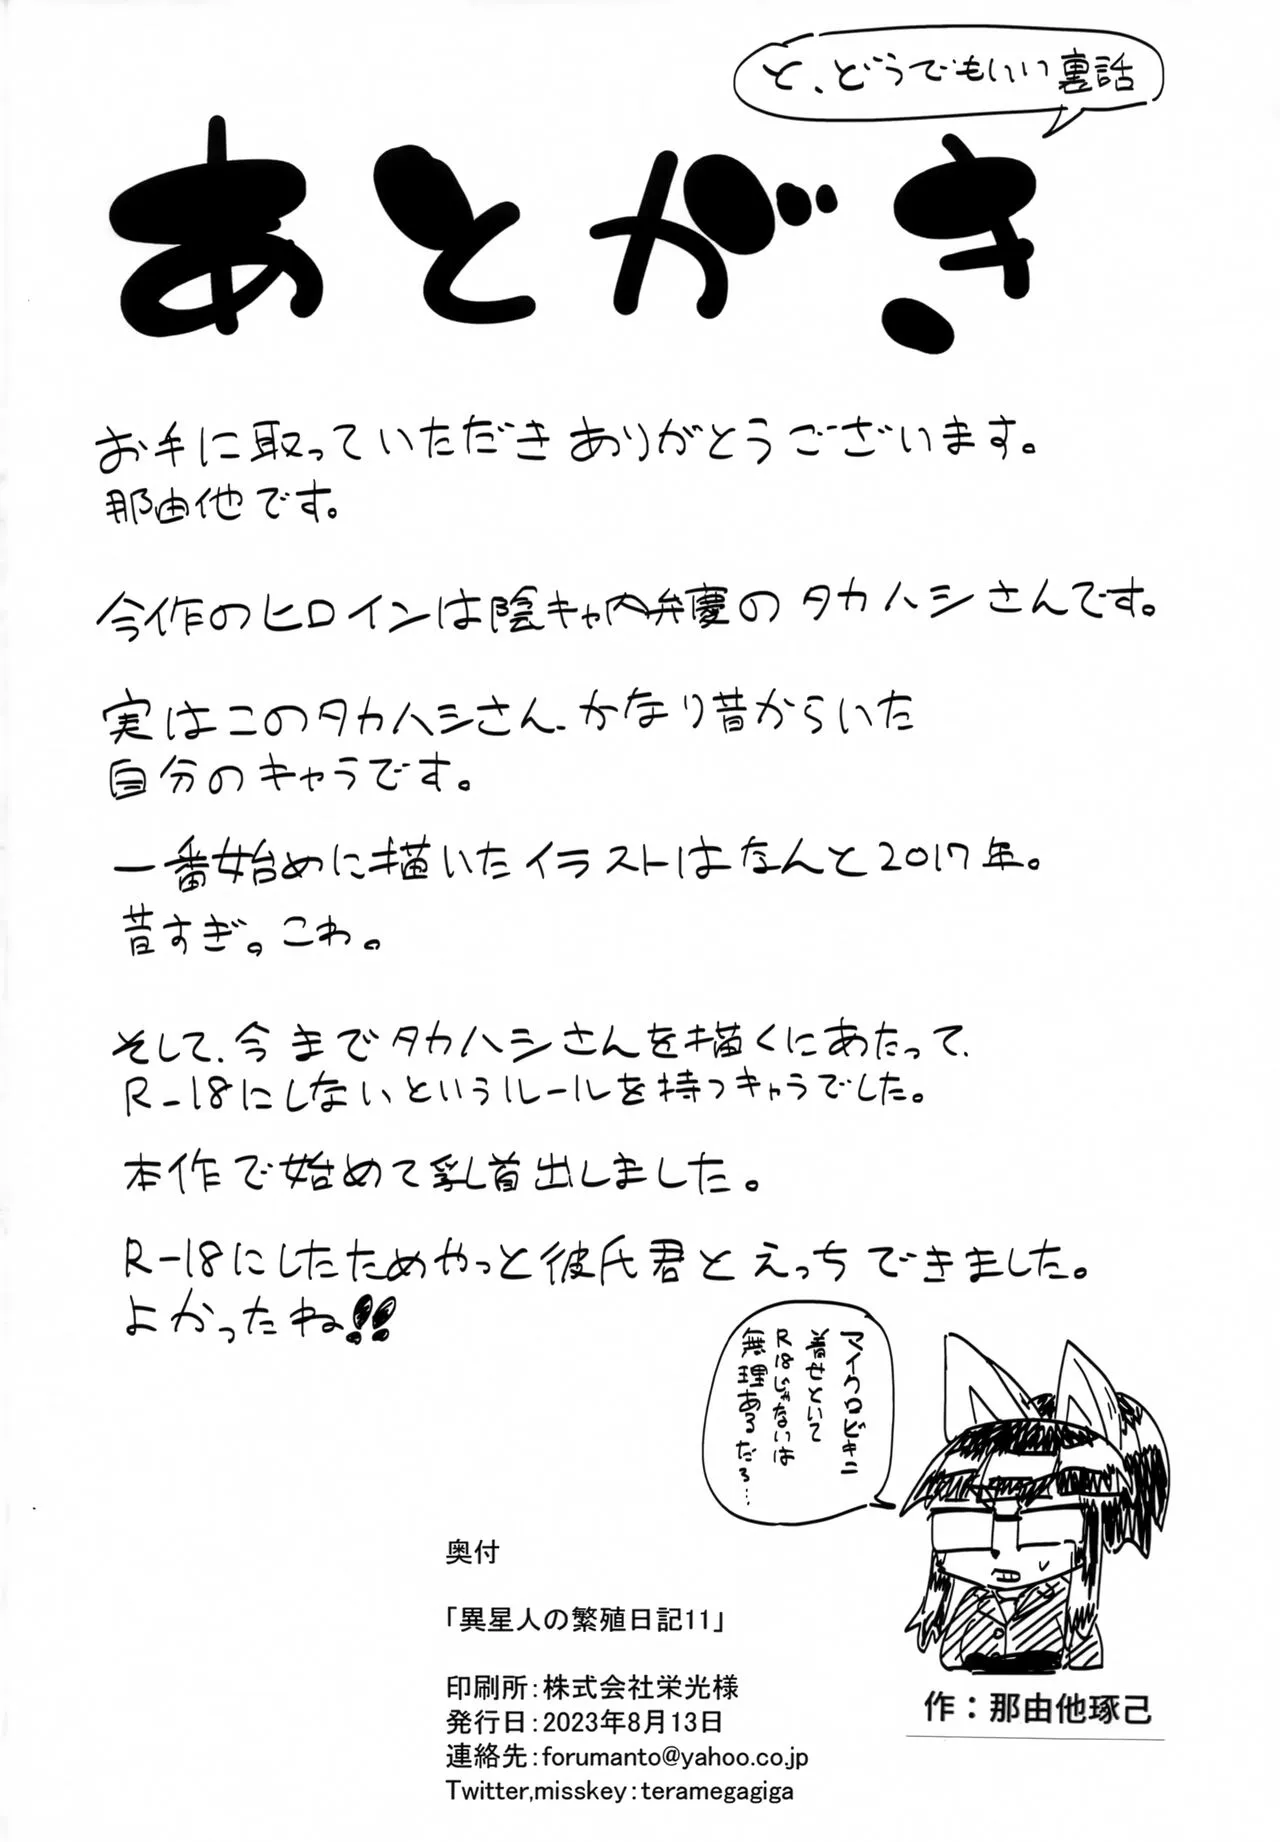 と、どうでもいい裏話
あとがき
お手に取っていただきありがとうございます。
那由他です。
今作のヒロインは陰キャ内弁慶のタカハシさんです。
実はこのタカハシさん、かなり昔からいた
自分のキャラです。
一番始めに描いたイラストはなんと2017年。
昔すぎ。こわ。
そして、今までタカハシさんを描くにあたって、
R-18にしないというルールを持つキャラでした。
本作で始めて乳首出しました。
R-18にしたためやっと彼氏君とえっちできました。
よかったね!!
マイクロビキニ
着せといて
R18じゃないは
無理あるだろ…
奥付
「異星人の繁殖日記11」
印刷所：株式会社栄光様
発行日：2023年8月13日
連絡先：forumanto@yahoo.co.jp
Twitter,misskey：teramegagiga
作：那由他琢己